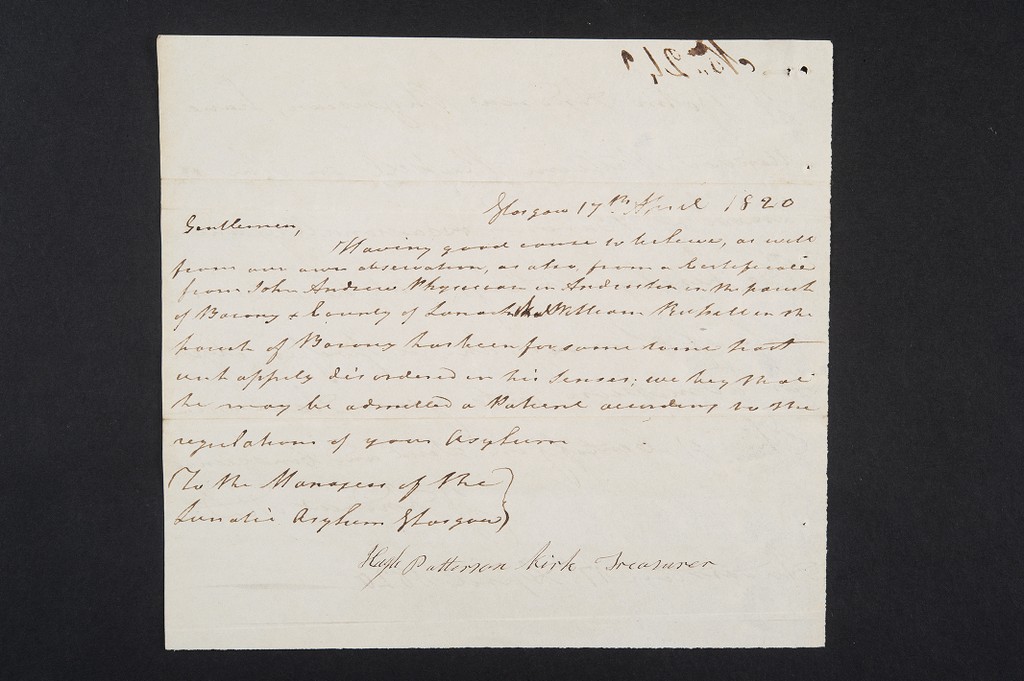 Glasgow 17th April 1820
Gentlemen,
Having good cause to believe, as well
from our own observation, as also from a Certificate
from John Andrew Physician in Anderston in the parish
of Barony & County of Lanark that William in the
parish of Barony has been for some time past
unhappily disordered in his senses; we beg that
he may be admitted a Patient according to the
regulations of your Asylum
To the Managers of the
Lunatic Asylum Glasgow
Hugh Patterson Kirk Treasurer